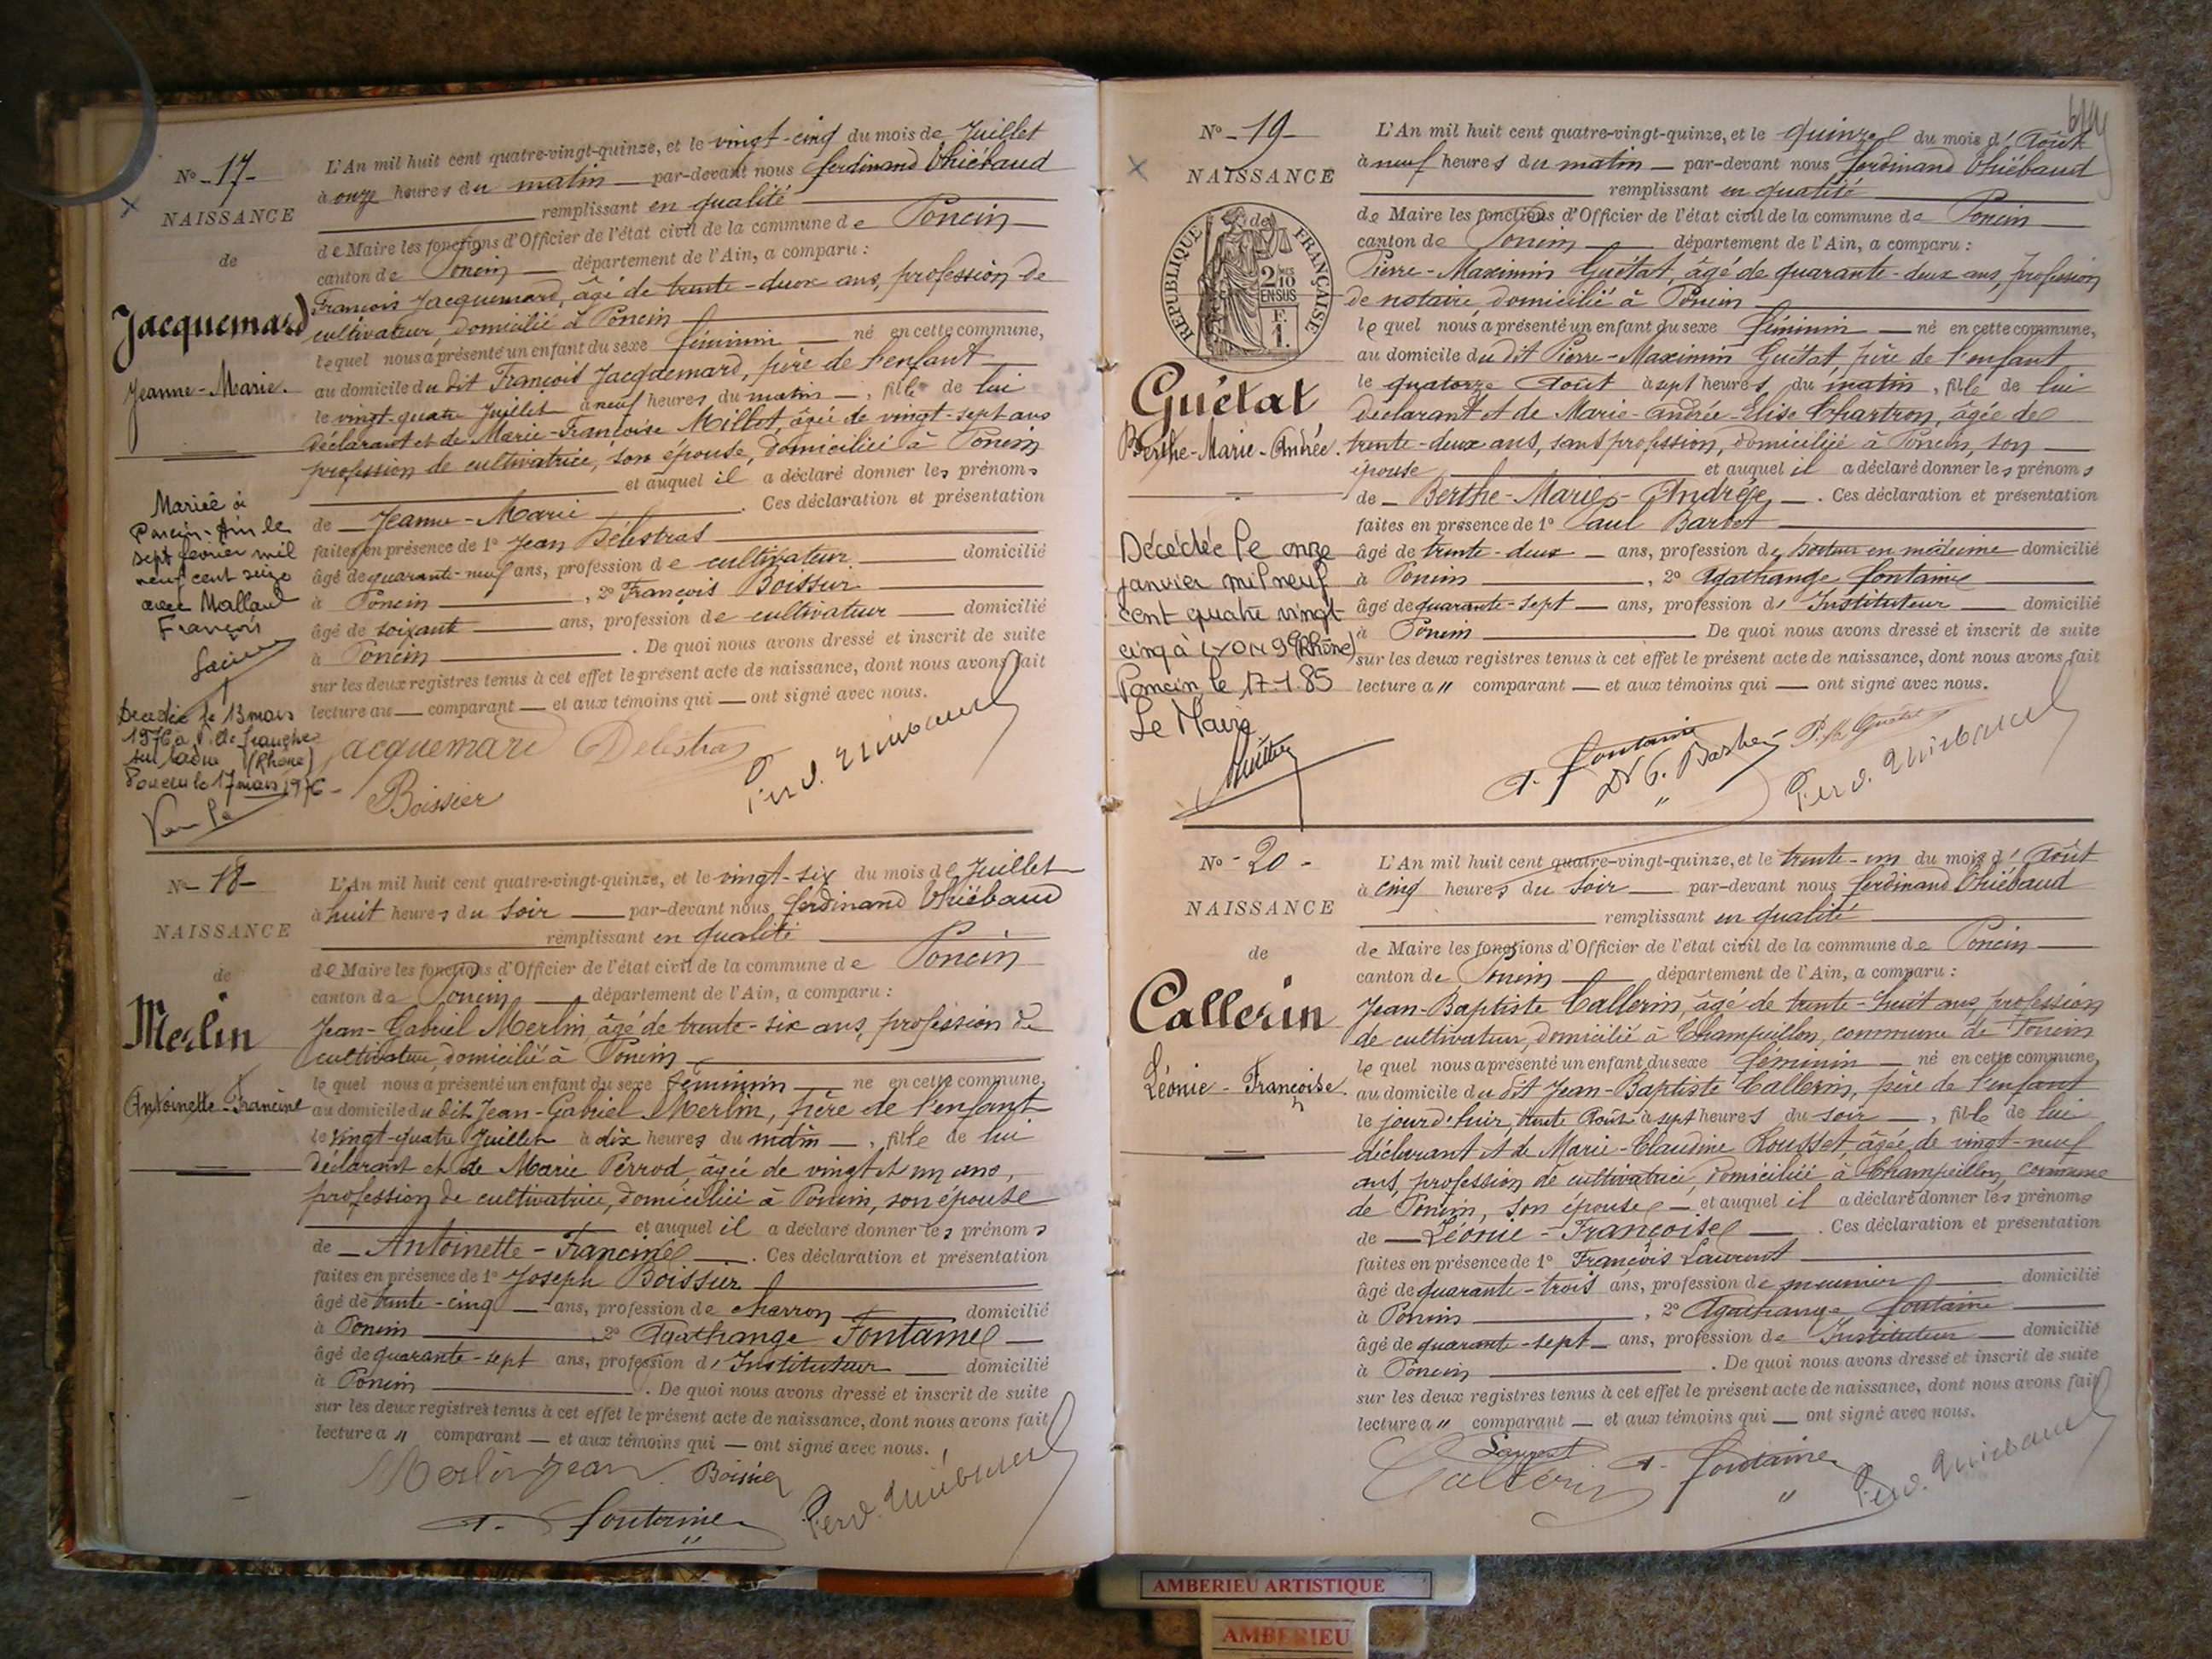 N° - 17 -
NAISSANCE
de
Jacquemard
Jeanne-Marie.
Mariée à
Poncin - Ain le
sept février mil
neuf cent seize
avec Mallaud
François
Décédée le 13 mars
1976 à Villefranche
sur Saône (Rhône)
Poncin le 17 mars 1976 -
L'An mil huit cent quatre-vingt-quinze, et le vingt-cinq du mois de Juillet
à onze heures du matin — par-devant nous Ferdinand Thiébaud
remplissant en qualité
de Maire les fonctions d'Officier de l'état civil de la commune de Poncin
canton de Poncin — département de l'Ain, a comparu :
François Jacquemard, âgé de trente-deux ans, profession de
cultivateur, domicilié à Poncin
lequel nous a présenté un enfant du sexe féminin — né en cette commune,
au domicile du dit François Jacquemard, père de l'enfant
le vingt-quatre Juillet à neuf heures du matin —, fille de lui
déclarant et de Marie-Françoise Millet, âgée de vingt-sept ans
profession de cultivatrice, son épouse, domiciliée à Poncin
et auquel il a déclaré donner les prénoms
de — Jeanne-Marie — . Ces déclaration et présentation
faites en présence de 1° Jean Délestras
âgé de quarante-neuf ans, profession de cultivateur — domicilié
à Poncin — , 2° François Boissier
âgé de soixante — ans, profession de cultivateur — domicilié
à Poncin — . De quoi nous avons dressé et inscrit de suite
sur les deux registres tenus à cet effet le présent acte de naissance, dont nous avons fait
lecture au — comparant — et aux témoins qui — ont signé avec nous.
Jacquemard Delestras
Boissier Ferd. Thiébaud
N° - 18 -
NAISSANCE
de
Merlin
Antoinette-Francine
L'An mil huit cent quatre-vingt-quinze, et le vingt-six du mois de Juillet
à huit heures du soir — par-devant nous Ferdinand Thiébaud
remplissant en qualité
de Maire les fonctions d'Officier de l'état civil de la commune de Poncin
canton de Poncin — département de l'Ain, a comparu :
Jean-Gabriel Merlin, âgé de trente-six ans, profession de
cultivateur, domicilié à Poncin
lequel nous a présenté un enfant du sexe féminin — né en cette commune,
au domicile du dit Jean-Gabriel Merlin, père de l'enfant
le vingt-quatre Juillet à dix heures du matin —, fille de lui
déclarant et de Marie Perrod, âgée de vingt et un ans,
profession de cultivatrice, domiciliée à Poncin, son épouse
et auquel il a déclaré donner les prénoms
de — Antoinette-Francine — . Ces déclaration et présentation
faites en présence de 1° Joseph Boissier
âgé de trente-cinq — ans, profession de charron — domicilié
à Poncin — , 2° Agathange Fontaine —
âgé de quarante-sept ans, profession d'Instituteur — domicilié
à Poncin — . De quoi nous avons dressé et inscrit de suite
sur les deux registres tenus à cet effet le présent acte de naissance, dont nous avons fait
lecture a " comparant — et aux témoins qui — ont signé avec nous.
Merlin Jean Boissier
A. Fontaine Ferd. Thiébaud
N° - 19 -
NAISSANCE
de
RÉPUBLIQUE FRANÇAISE
2/10 EN SUS
F. 1.
Guétat
Berthe-Marie-Andrée.
Décédée le onze
janvier mil neuf
cent quatre vingt
cinq à LYON 9e (Rhône)
Poncin, le 17-1-85
Le Maire
L'An mil huit cent quatre-vingt-quinze, et le quinze du mois d'Août
à neuf heures du matin — par-devant nous Ferdinand Thiébaud
remplissant en qualité
de Maire les fonctions d'Officier de l'état civil de la commune de Poncin
canton de Poncin — département de l'Ain, a comparu :
Pierre-Maximin Guétat, âgé de quarante-deux ans, profession
de notaire domicilié à Poncin
lequel nous a présenté un enfant du sexe féminin — né en cette commune,
au domicile du dit Pierre-Maximin Guétat père de l'enfant
le quatorze Août à sept heures du matin, fille de lui
déclarant et de Marie-Andrée-Elise Chartron, âgée de
trente-deux ans, sans profession, domiciliée à Poncin, son
épouse — et auquel il a déclaré donner les prénoms
de — Berthe-Marie-Andrée — . Ces déclaration et présentation
faites en présence de 1° Paul Barbet
âgé de trente-deux — ans, profession de docteur en médecine domicilié
à Poncin — , 2° Agathange Fontaine
âgé de quarante-sept — ans, profession d'Instituteur — domicilié
à Poncin — De quoi nous avons dressé et inscrit de suite
sur les deux registres tenus à cet effet le présent acte de naissance, dont nous avons fait
lecture a " comparant — et aux témoins qui — ont signé avec nous.
A. Fontaine P. M. Guétat
Ferd. Thiébaud
N° - 20 -
NAISSANCE
de
Callerin
Léonie-Françoise
L'An mil huit cent quatre-vingt-quinze, et le trente-un du mois d'Août
à cinq heures du soir — par-devant nous Ferdinand Thiébaud
remplissant en qualité
de Maire les fonctions d'Officier de l'état civil de la commune de Poncin
canton de Poncin — département de l'Ain, a comparu :
Jean-Baptiste Callerin, âgé de trente-huit ans, profession
de cultivateur, domicilié à Champeillon, commune de Poncin
lequel nous a présenté un enfant du sexe féminin — né en cette commune,
au domicile du dit Jean-Baptiste Callerin, père de l'enfant
le jourd'hier, trente Août à sept heures du soir —, fille de lui
déclarant et de Marie-Claudine Rousset, âgée de vingt-neuf
ans, profession de cultivatrice, domiciliée à Champeillon, commune
de Poncin, son épouse — et auquel il a déclaré donner les prénoms
de — Léonie-Françoise — . Ces déclaration et présentation
faites en présence de 1° François Laurent
âgé de quarante-trois ans, profession de meunier — domicilié
à Poncin — , 2° Agathange Fontaine
âgé de quarante-sept — ans, profession de Instituteur — domicilié
à Poncin — . De quoi nous avons dressé et inscrit de suite
sur les deux registres tenus à cet effet le présent acte de naissance, dont nous avons fait
lecture a " comparant — et aux témoins qui — ont signé avec nous.
Laurent
Callerin A. Fontaine Ferd. Thiébaud
AMBERIEU ARTISTIQUE
AMBERIEU